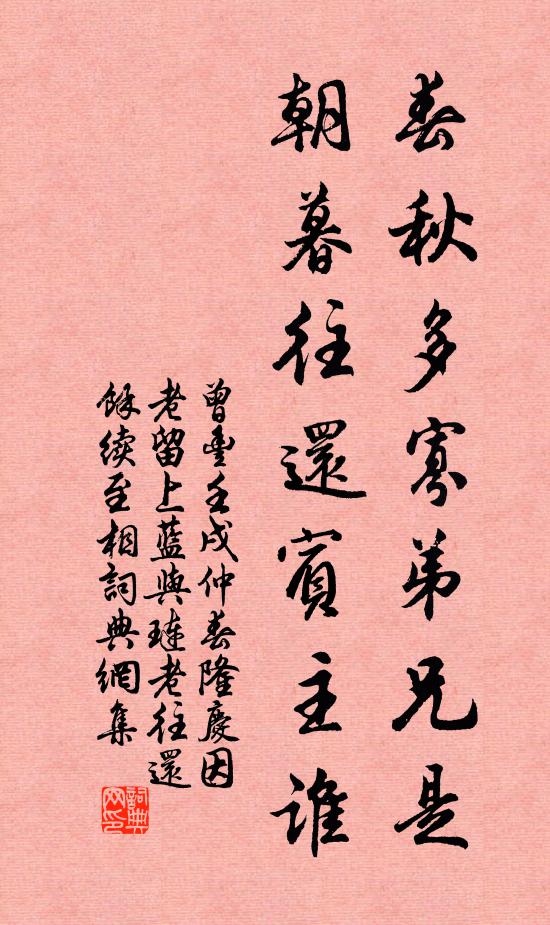 春秋多寡弟兄是
朝暮往還賓主誰
曾豐壬戌仲春隆慶因
老留上藍與璉老往還
餘續至相詞典網集
詞典
网印